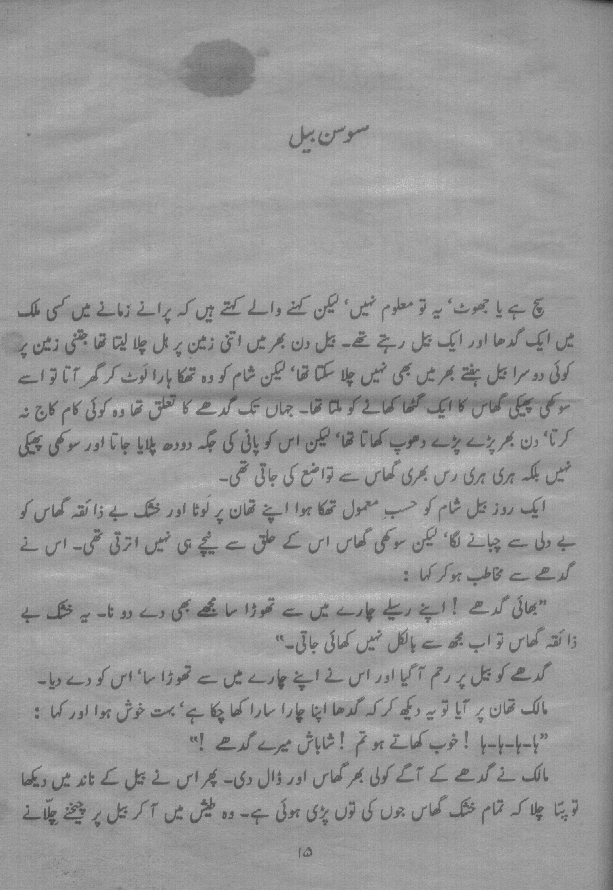 سوسن بیل
سچ ہے یا جھوٹ، یہ تو معلوم نہیں، لیکن کہنے والے کہتے ہیں کہ پرانے زمانے میں کسی ملک
میں ایک گدھا اور ایک بیل رہتے تھے۔ بیل دن بھر میں اتنی زمین پر ہل چلا لیتا تھا جتنی زمین پر
کوئی دوسرا بیل ہفتے بھر میں بھی نہیں چلا سکتا تھا، لیکن شام کو وہ تھکا ہارا لوٹ کر گھر آتا تو اسے
سوکھی پھیکی گھاس کا ایک گٹھا کھانے کو ملتا تھا۔ جہاں تک گدھے کا تعلق تھا وہ کوئی کام کاج نہ
کرتا، دن بھر پڑے پڑے دھوپ کھاتا تھا، لیکن اس کو پانی کی جگہ دودھ پلایا جاتا اور سوکھی پھیکی
نہیں بلکہ ہری ہری رس بھری گھاس سے تواضع کی جاتی تھی۔
ایک روز بیل شام کو حسب معمول تھکا ہوا اپنے تھان پر لوٹا اور خشک بے ذائقہ گھاس کو
بے دلی سے چبانے لگا، لیکن سوکھی گھاس اس کے حلق سے نیچے ہی نہیں اترتی تھی۔ اس نے
گدھے سے مخاطب ہوکر کہا :
”بھائی گدھے ! اپنے رسیلے چارے میں سے تھوڑا سا مجھے بھی دے دو نا۔ یہ خشک بے
ذائقہ گھاس تو اب مجھ سے بالکل نہیں کھائی جاتی۔“
گدھے کو بیل پر رحم آگیا اور اس نے اپنے چارے میں سے تھوڑا سا، اس کو دے دیا۔
مالک تھان پر آیا تو یہ دیکھ کر کہ گدھا اپنا چارا سارا کھا چکا ہے، بہت خوش ہوا اور کہا :
”ہا-ہا-ہا-ہا ! خوب کھاتے ہو تم ! شاباش میرے گدھے !“
مالک نے گدھے کے آگے کولی بھر گھاس اور ڈال دی۔ پھر اس نے بیل کے ناند میں دیکھا
تو پتا چلا کہ تمام خشک گھاس جوں کی توں پڑی ہوئی ہے۔ وہ طیش میں آکر بیل پر چیخنے چلّانے
۱۵